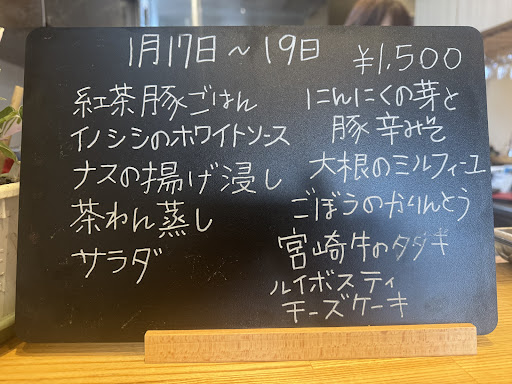 1月17日～19日 ¥1,500
紅茶豚ごはん
イノシシのホワイトソース
ナスの揚げ浸し
茶わん蒸し
サラダ
にんにくの芽と
豚辛みそ
大根のミルフィーユ
ごぼうのかりんとう
宮崎牛のタタギ
ルイボスティ
チーズケーキ